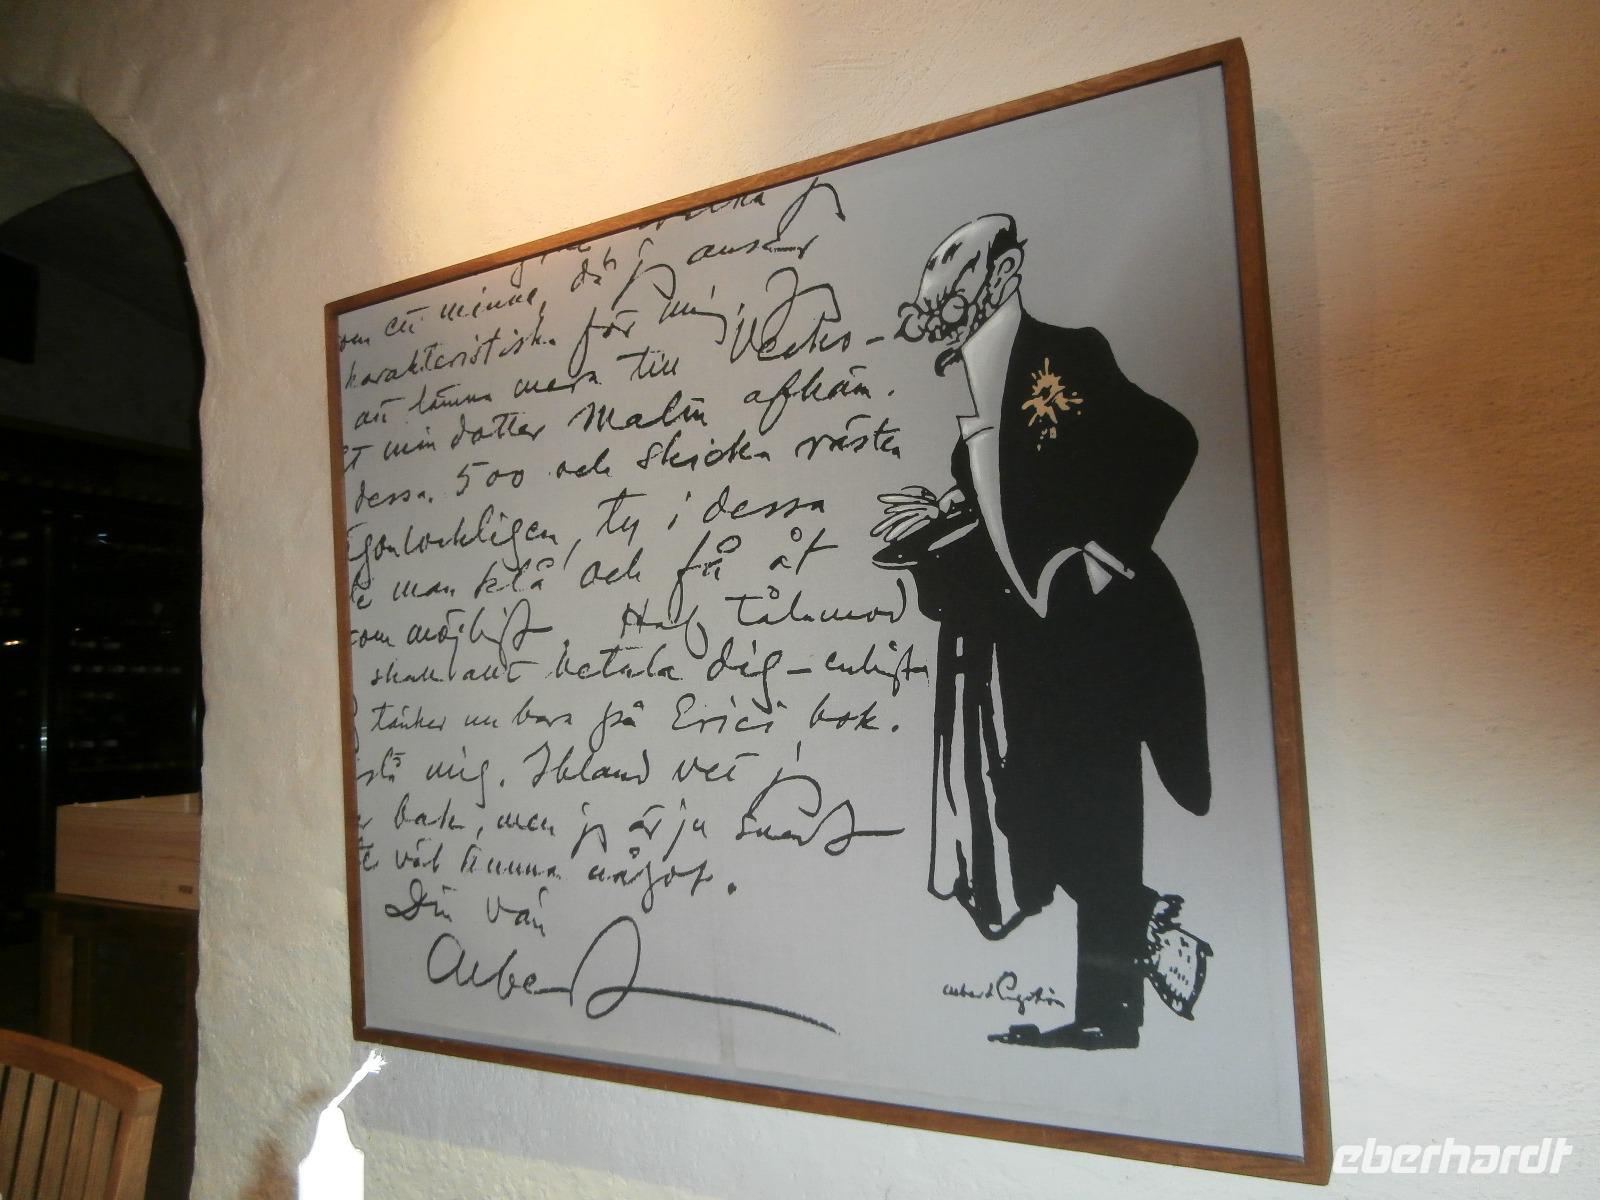 om ett minne, då jg anser
karakteristisk för mig. Jg
att lämna mera till Vecko-
min dotter Malin afhäm.
dessa. 500 och skicka resten
ögonblickligen, ty i dessa
man klå och få åt
som möjligt. Haf tålamod
skall allt betala dig – enligt
tänker nu bara på Erics bok.
mig. Ibland vet jg
bak, men jg är ju snart
väl finna något.
Din vän
Albert
Albert Engström
eberhardt